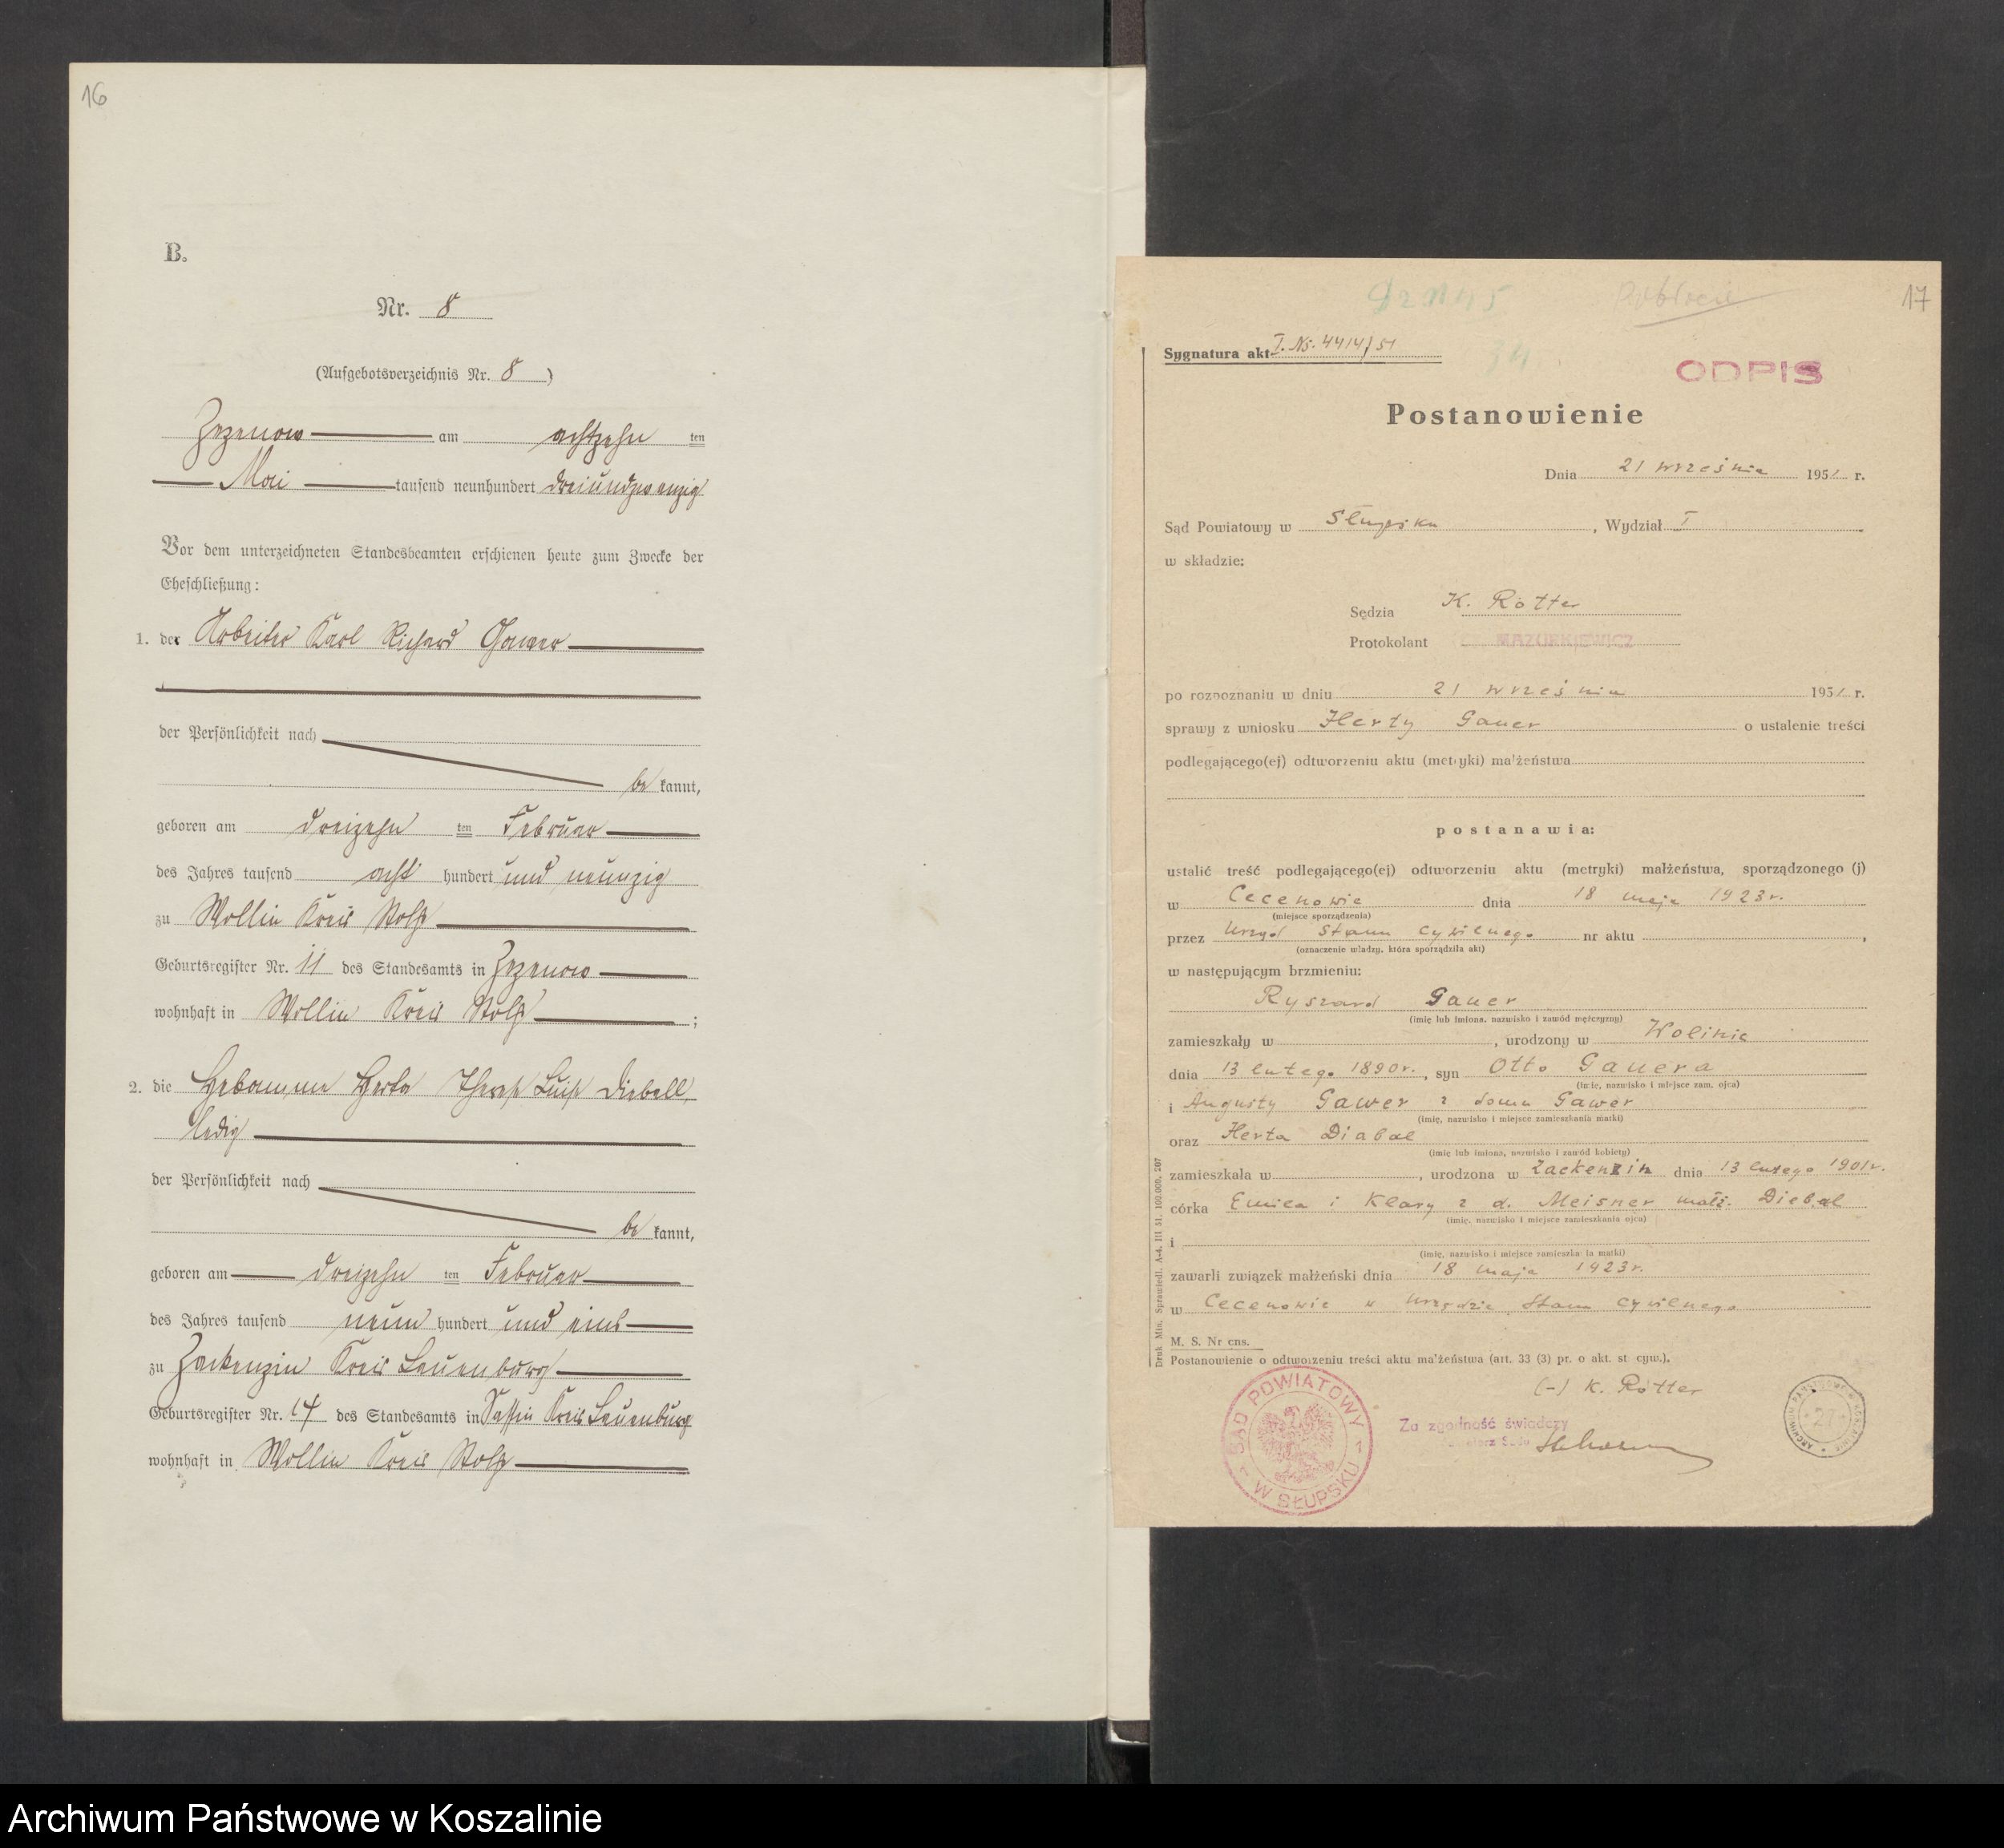 16
B.
Nr. 8
(Aufgebotsverzeichnis Nr. 8)
Zezenow am achtzehn ten
Mai tausend neunhundert dreiundzwanzig
Vor dem unterzeichneten Standesbeamten erschienen heute zum Zwecke der
Eheschließung:
1. der Arbeiter Karl Richard Gawer
der Persönlichkeit nach
be kannt,
geboren am dreizehn ten Februar
des Jahres tausend acht hundert und neunzig
zu Wollin Kreis Stolp
Geburtsregister Nr. 11 des Standesamts in Zezenow
wohnhaft in Wollin Kreis Stolp;
2. die Hebamme Herta Therese Luise Diebell,
ledig
der Persönlichkeit nach
be kannt,
geboren am dreizehn ten Februar
des Jahres tausend neun hundert und eins
zu Zackenzin Kreis Lauenburg
Geburtsregister Nr. 14 des Standesamts in Sassin Kreis Lauenburg
wohnhaft in Wollin Kreis Stolp
17
34
Sygnatura akt I. Ns. 4414/51
ODPIS
Postanowienie
Dnia 21 września 1951 r.
Sąd Powiatowy w Słupsku, Wydział I
w składzie:
Sędzia K. Rotter
Protokolant MAZURKIEWICZ
po rozpoznaniu w dniu 21 września 1951 r.
sprawy z wniosku Herty Gauer o ustalenie treści
podlegającego(ej) odtworzeniu aktu (metryki) małżeństwa
postanawia:
ustalić treść podlegającego(ej) odtworzeniu aktu (metryki) małżeństwa, sporządzonego (j)
w Cecenowie dnia 18 maja 1923 r.
(miejsce sporządzenia)
przez Urząd Stanu Cywilnego nr aktu ,
(oznaczenie władzy, która sporządziła akt)
w następującym brzmieniu:
Ryszard Gauer
(imię lub imiona, nazwisko i zawód mężczyzny)
zamieszkały w , urodzony w Wolinie
dnia 13 lutego 1890 r., syn Otto Gauera
(imię, nazwisko i miejsce zam. ojca)
i Augusty Gawer z domu Gawer
(imię, nazwisko i miejsce zamieszkania matki)
oraz Herta Diabal
(imię lub imiona, nazwisko i zawód kobiety)
zamieszkała w , urodzona w Zackenzin dnia 13 lutego 1901 r.
córka Emila i Klary z d. Meisner małż. Diebal
(imię, nazwisko i miejsce zamieszkania ojca)
i
(imię, nazwisko i miejsce zamieszkania matki)
zawarli związek małżeński dnia 18 maja 1923 r.
w Cecenowie w Urzędzie Stanu Cywilnego
M. S. Nr cns.
Postanowienie o odtworzeniu treści aktu małżeństwa (art. 33 (3) pr. o akt. st cyw.).
(-) K. Rotter
Za zgodność świadczy
SĄD POWIATOWY W SŁUPSKU
27
Druk Min. Sprawiedl. A-4. III 51. 100.000. 207
Archiwum Państwowe w Koszalinie